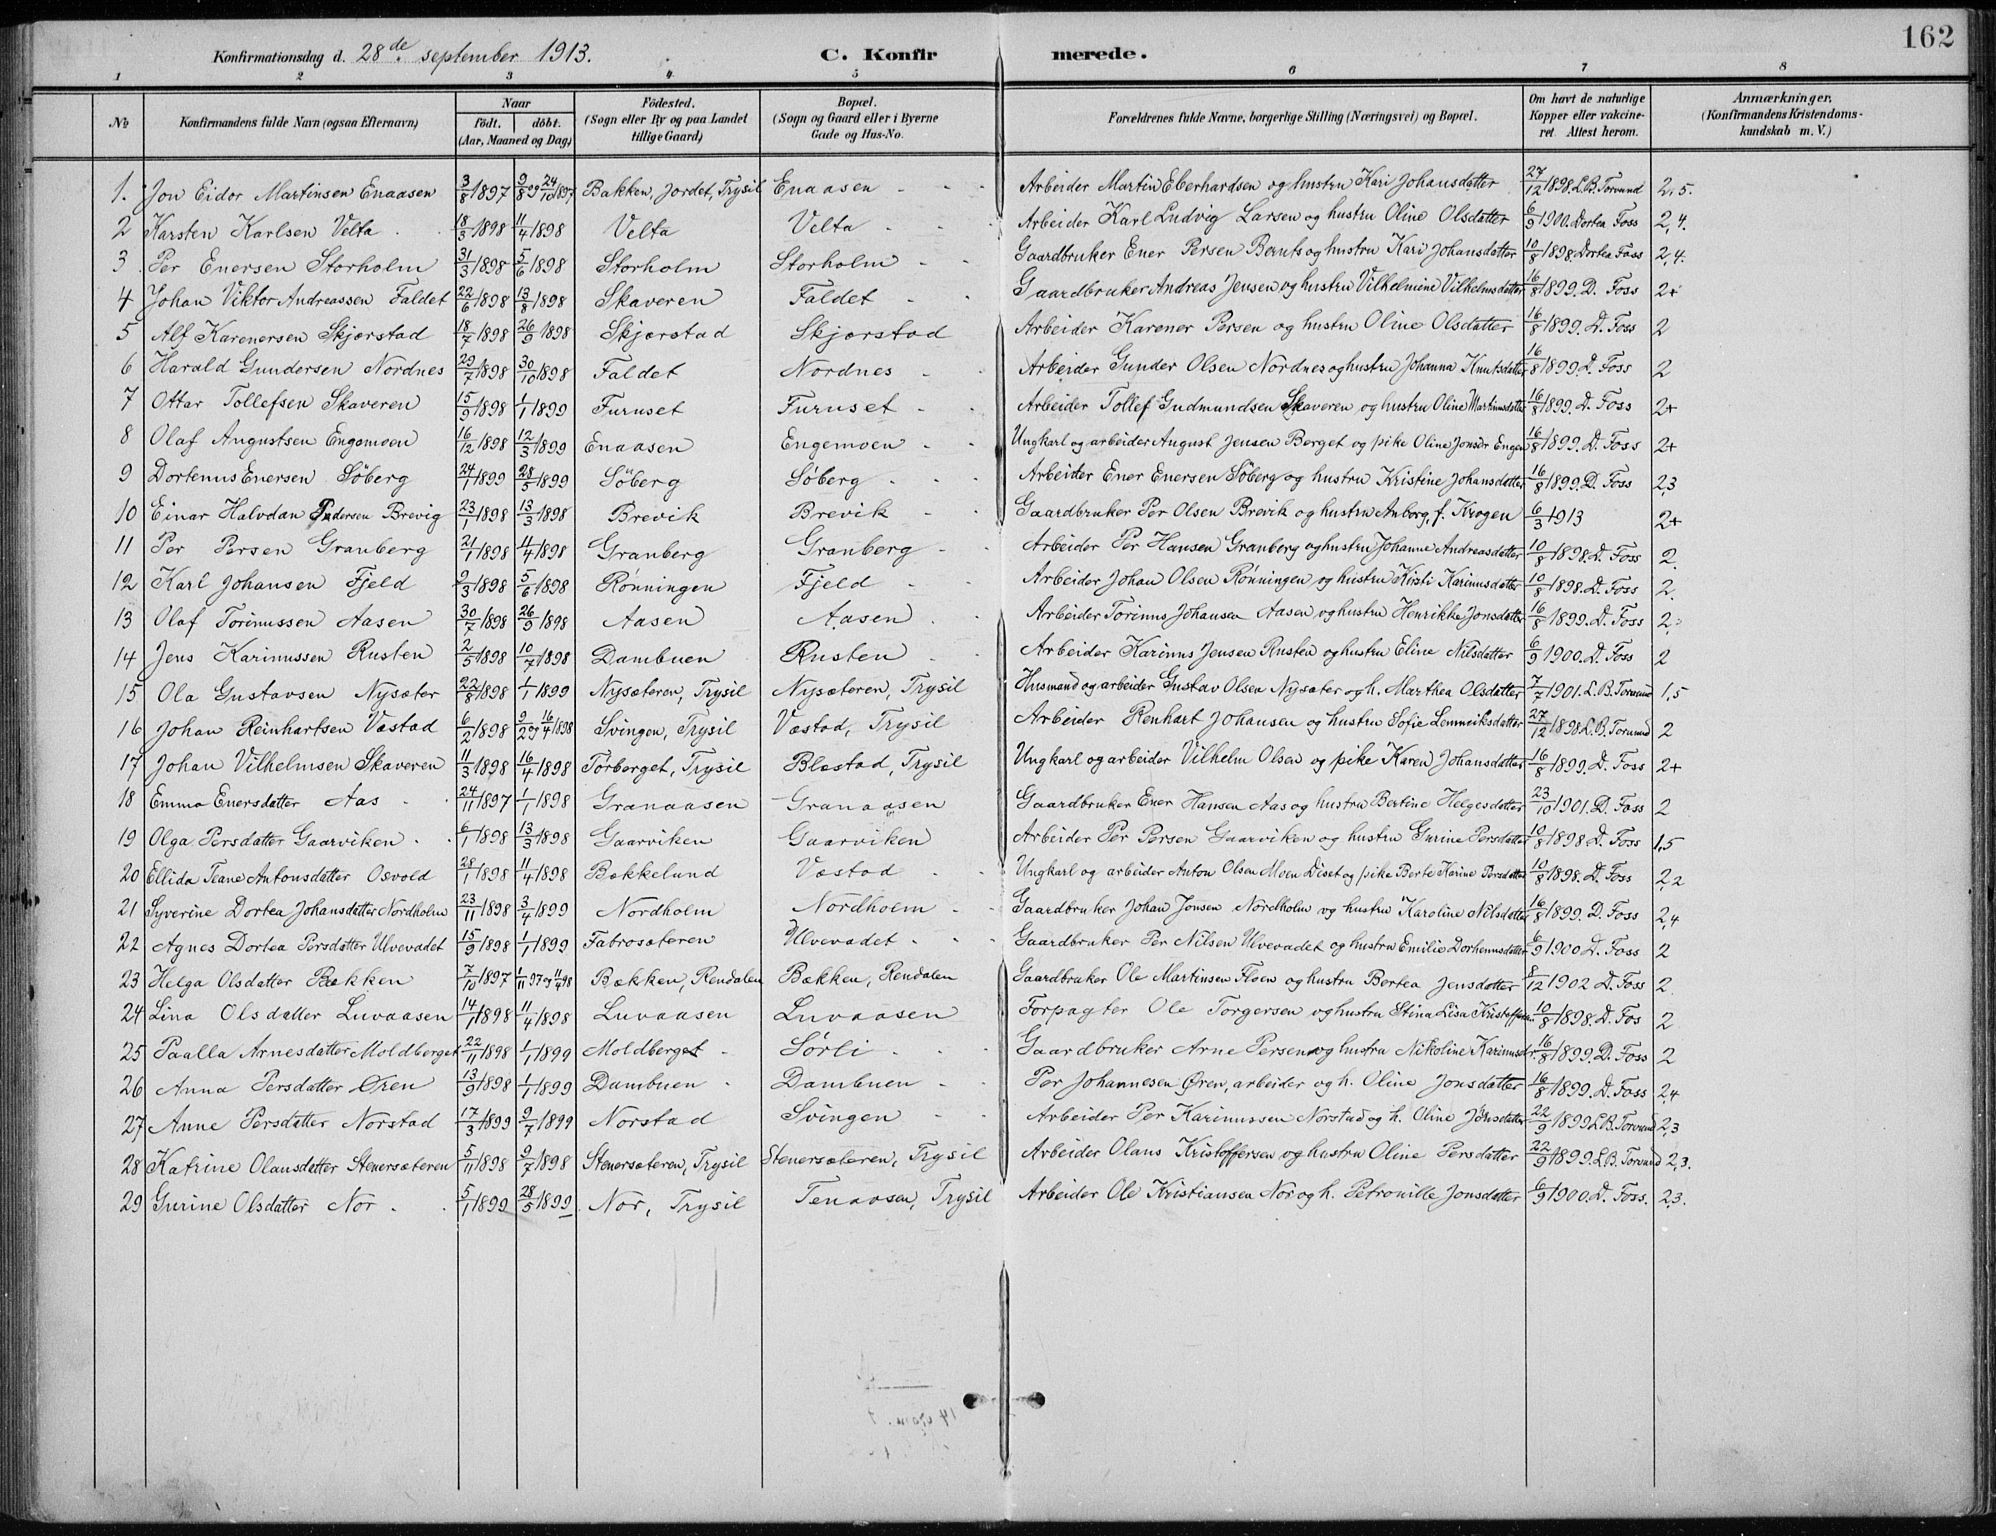 162
Konfirmationsdag d. 28de september 1913. C. Konfirmerede.
1 2 3 4 5 6 7 8
№ Konfirmandens fulde Navn (ogsaa Efternavn) Naar födt. döbt. (Aar, Maaned og Dag) Födested. (Sogn eller By og paa Landet tillige Gaard) Bopæl. (Sogn og Gaard eller i Byerne Gade og Hus-No. Forældrenes fulde Navne, borgerlige Stilling (Næringsvei) og Bopæl. Om havt de naturlige Kopper eller vakcineret. Attest herom. Anmærkninger. (Konfirmandens Kristendomskundskab m. V.)
1. Jon Eidor Martinsen Enaasen 3/8 1897 9/8 og 24/10 1897 Bakken, Jordet, Trysil Enaasen - - Arbeider Martin Eberhardsen og hustru Kari Johansdatter 27/12 1898. L.B. Torvund 2,5.
2 Karsten Karlsen Velta 18/3 1898 11/4 1898 Velta Velta - - Arbeider Karl Ludvig Larsen og hustru Oline Olsdatter 6/9 1900. Dortea Foss 2,4.
3 Per Enersen Storholm 31/3 1898 5/6 1898 Storholm Storholm - - Gaardbruker Ener Persen Bernts og hustru Kari Johansdatter 10/8 1898. Dortea Foss 2,4.
4 Johan Viktor Andreassen Faldet 22/6 1898 13/8 1898 Skaveren Faldet - - Gaardbruker Andreas Jensen og hustru Vilhelmine Vilhelmsdatter 16/8 1899. D. Foss 2+
5 Alf Karenersen Skjærstad 18/7 1898 26/9 1898 Skjærstad Skjærstad Arbeider Karener Persen og hustru Oline Olsdatter 16/8 1899. D. Foss 2
6 Harald Gundersen Nordnes 29/7 1898 30/10 1898 Faldet Nordnes - - Arbeider Gunder Olsen Nordnes og hustru Johanna Knutsdatter 16/8 1899. D. Foss 2
7 Ottar Tollefsen Skaveren 15/9 1898 1/1 1899 Furuset Furuset - - Arbeider Tollef Gudmundsen Skaveren og hustru Oline Martinusdatter 16/8 1899. D. Foss 2+
8 Olaf Augustsen Engemoen 16/12 1898 12/3 1899 Enaasen Engemoen - - Ungkarl og arbeider August Jensen Berget og pike Oline Jonsdr Engen 16/8 1899. D. Foss 2+
9 Dortenus Enersen Söberg 24/1 1899 28/5 1899 Söberg Söberg - - Arbeider Ener Enersen Söberg og hustru Kristine Johansdatter 16/8 1899. D. Foss 2,3
10 Einar Halvdan Pedersen Brevig 23/1 1898 13/3 1898 Brevik Brevik - - Gaardbruker Per Olsen Brevik og hustru Anborg, f. Krogen 6/3 1913 2+
11 Per Persen Granberg 21/1 1898 11/4 1898 Granberg Granberg - - Arbeider Per Hansen Granberg og hustru Johanne Andreasdatter 10/8 1898. D. Foss 2.
12 Karl Johansen Fjeld 9/3 1898 5/6 1898 Rønningen Fjeld - - Arbeider Johan Olsen Rønningen og hustru Kirsti Karinusdatter 10/8 1898. D. Foss 2.
13 Olaf Torinussen Aasen 30/7 1898 26/9 1898 Aasen Aasen - - Arbeider Torinus Johansen Aasen og hustru Henrikke Jonsdatter 16/8 1899. D. Foss 2
14 Jens Karinussen Rusten 2/5 1898 10/7 1898 Dambuen Rusten - - Arbeider Karinus Jensen Rusten og hustru Eline Nilsdatter 6/9 1900. D. Foss 2
15 Ola Gustavsen Nysæter 22/8 1898 1/1 1899 Nysæteren, Trysil Nysæteren, Trysil Husmand og arbeider Gustav Olsen Nysæter og h. Marthea Olsdatter 7/7 1901. L.B. Torvund 1,5
16 Johan Reinhartsen Væstad 6/2 1898 9/2 og 16/4 1898 Svingen, Trysil Væstad, Trysil Arbeider Renhart Johansen og hustru Sofie Lemmeiksdatter 27/12 1898 L.B. Torvund 2
17 Johan Vilhelmsen Skaveren 11/3 1898 16/4 1898 Törberget, Trysil Blæstad, Trysil Ungkarl og arbeider Vilhelm Olsen og pike Karen Johansdatter 16/8 1899. D. Foss 2+
18 Emma Enersdatter Aas 24/11 1897 1/1 1898 Granaasen Granaasen Gaardbruker Ener Hansen Aas og hustru Bertine Helgesdatter 23/10 1901. D. Foss 2
19 Olga Persdatter Gaarviken 6/1 1898 13/3 1898 Gaarviken Gaarviken Arbeider Per Persen Gaarviken og hustru Gurine Persdatter 10/8 1898 D. Foss 1,5
20 Ellida Teane Antonsdatter Osvold 28/1 1898 11/4 1898 Bækkelund Væstad - - Ungkarl og arbeider Anton Olsen Moen Diset og pike Berte Karine Persdatter 10/8 1898. D. Foss 2,2
21 Syverine Dortea Johansdatter Nordholm 23/11 1898 3/4 1899 Nordholm Nordholm - - Gaardbruker Johan Jonsen Nordholm og hustru Karoline Nilsdatter 16/8 1899. D. Foss 2,4
22 Agnes Dortea Persdatter Ulvevadet 15/9 1898 1/1 1899 Fatrosæteren Ulvevadet - - Gaardbruker Per Nilsen Ulvevadet og hustru Emilie Dorhennsdatter 6/9 1900 D. Foss 2
23 Helga Olsdatter Bækken 7/10 1897 1/11 97 og 11/4 98 Bækken, Rendalen Bækken, Rendalen Gaardbruker Ole Martinsen Floen og hustru Bertea Jensdatter 8/12 1902 D. Foss 2.
24 Lina Olsdatter Luvaasen 14/1 1898 11/4 1898 Luvaasen Luvaasen Forpagter Ole Torgersen og hustru Stina Lisa Kristoffersen 10/8 1898. D. Fos 2
25 Paalla Arnesdatter Moldberget 22/11 1898 1/1 1899 Moldberget - Sörli - - Gaardbruker Arne Persen og hustru Nikoline Karinusdr. 16/8 1899. D. Foss 2
26 Anna Persdatter Øren 13/9 1898 1/1 1899 Dambuen - Dambuen - - Per Johannesen Øren, arbeider og h. Oline Jonsdatter 16/8 1899. D. Foss 2,4
27 Anne Persdatter Norstad 17/3 1899 9/7 1899 Norstad Svingen - - Arbeider Per Karinussen Norstad og h. Oline Jonsdatter 22/9 1899 L.B. Torvund 2,3
28 Katrine Olausdatter Stenersæteren 5/11 1898 9/7 1898 Stenersæteren, Trysil Stenersæteren, Trysil Arbeider Olaus Kristoffersen og hustru Oline Persdatter 22/9 1899 L.B. Torvund 2,3.
29 Gurine Olsdatter Nor - - 5/1 1899 28/5 1899 Nor, Trysil Tenaasen, Trysil Arbeider Ole Kristiansen Nor og h. Petronille Jonsdatter 6/9 1900. D. Foss. 2,3.